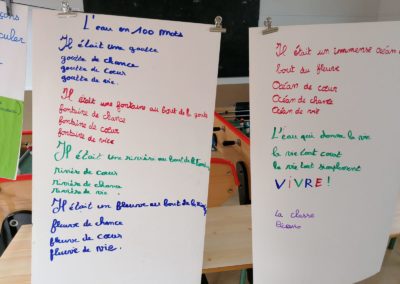 çons
culier
L'eau en 100 mots
Il était une goutte
goutte de chance
goutte de cœur
goutte de vie.
Il était une fontaine au bout de la goutte
fontaine de chance
fontaine de cœur
fontaine de vie
Il était une rivière au bout de la
rivière de cœur
rivière de chance
rivière de vie.
Il était un fleuve au bout de la
fleuve de chance
fleuve de cœur
fleuve de vie.
Il était un immense océan
bout du fleuve
Océan de cœur
Océan de chance
Océan de vie
L'eau qui donne la vie
la vie tout court
la vie tout simplement
VIVRE!
La classe